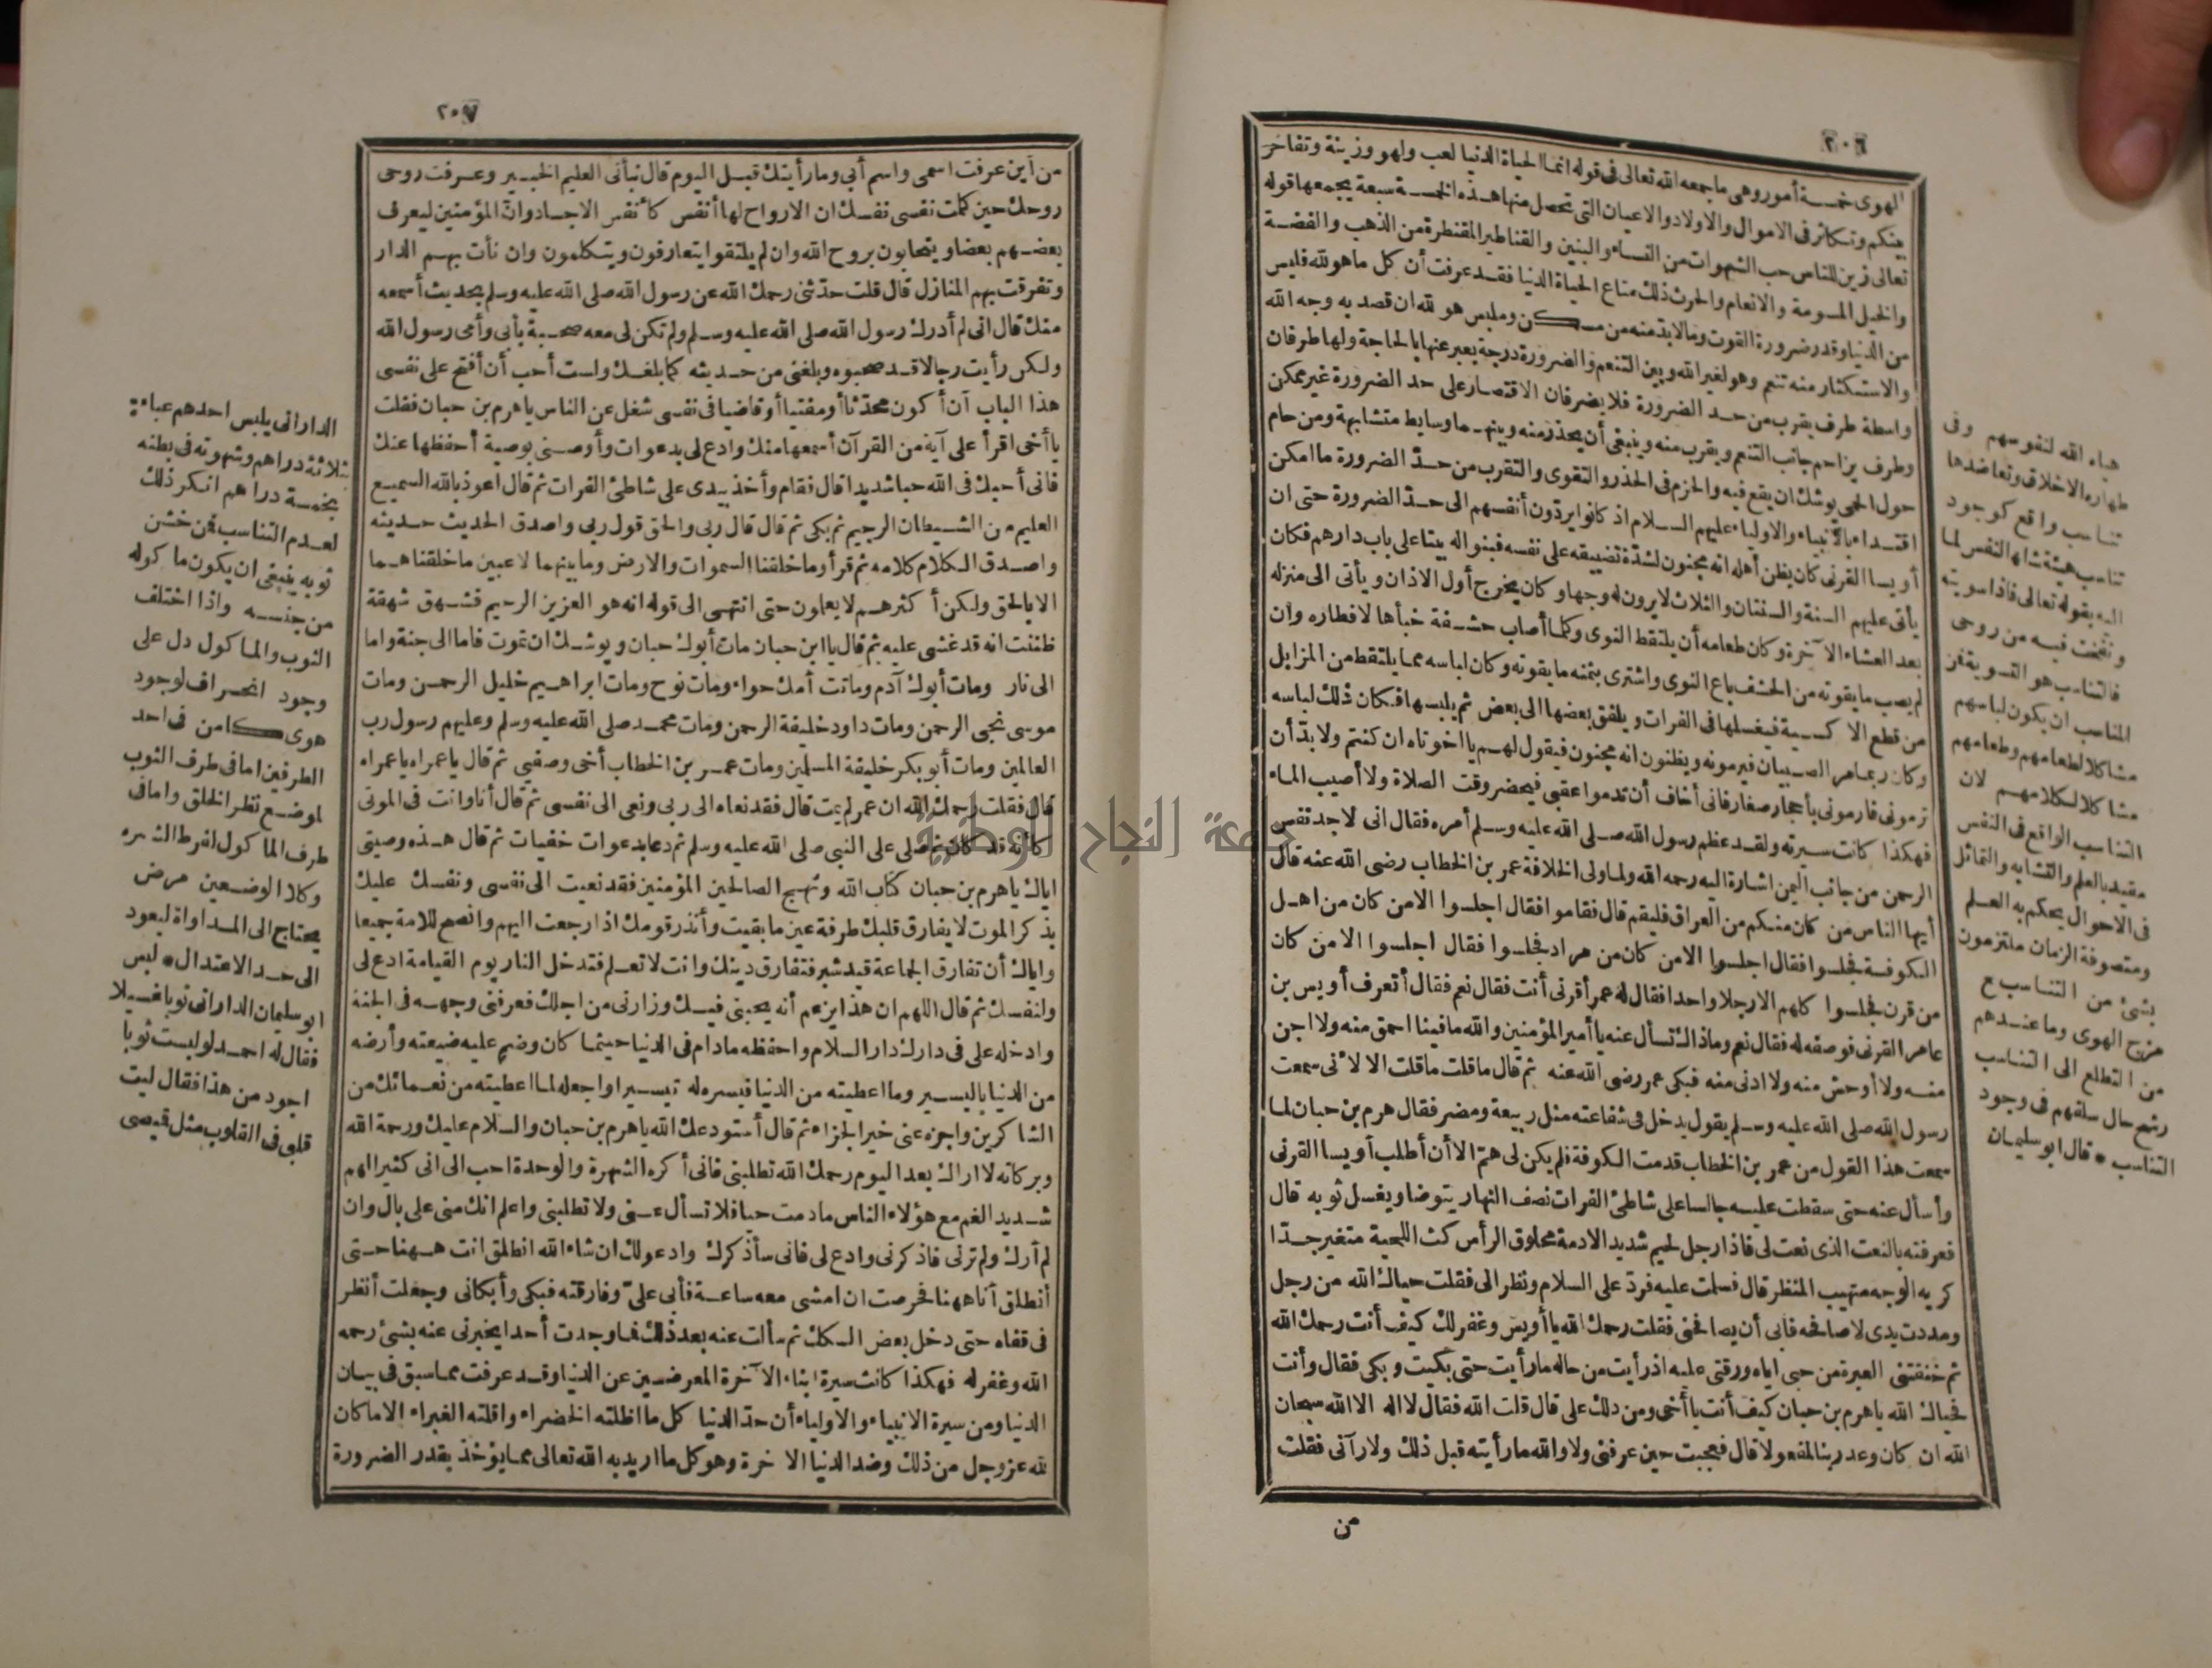 ٢٠٦
الهوى خمسة أمور وهى ما جمعه الله تعالى فى قوله انما الحياة الدنيا لعب ولهو وزينة وتفاخر
بينكم وتكاثر فى الاموال والاولاد والاعيان التى تحصل منها هذه الخمسة سبعة يجمعها قوله
تعالى زين للناس حب الشهوات من النساء والبنين والقناطير المقنطرة من الذهب والفضة
والخيل المسومة والانعام والحرث ذلك متاع الحياة الدنيا فقد عرفت أن كل ما هو لله فليس
من الدنيا وقدر ضرورة القوت وما لا بد منه من مسكن وملبس هو لله ان قصد به وجه الله
والاستكثار منه تنعم وهو لغير الله وبين التنعم والضرورة درجة يعبر عنها بالحاجة ولها طرفان
واسطة طرف يقرب من حد الضرورة فلا يضر فان الاقتصار على حد الضرورة غير ممكن
وطرف يزاحم جانب التنعم ويقرب منه وينبغى أن يحذر منه وبينهما وسايط متشابهة ومن حام
حول الحمى يوشك ان يقع فيه والحزم فى الحذر والتقوى والتقرب من حد الضرورة ما امكن
اقتداء بالانبياء والاولياء عليهم السلام اذ كانوا يردون أنفسهم الى حد الضرورة حتى ان
أويسا القرنى كان يظن أهله انه مجنون لشدة تضييقه على نفسه فبنوا له بيتا على باب دارهم فكان
يأتى عليهم السنة والسنتان والثلاث لا يرون له وجها وكان يخرج أول الاذان ويأتى الى منزله
بعد العشاء الآخرة وكان طعامه أن يلتقط النوى وكلما أصاب حشفة خبأها لافطاره وان
لم يصب ما يقوته من الحشف باع النوى واشترى بثمنه ما يقوته وكان لباسه مما يلتقط من المزابل
من قطع الاكسية فيغسلها فى الفرات ويلفق بعضها الى بعض ثم يلبسها فكان ذلك لباسه
وكان ربما مر الصبيان فيرمونه ويظنون انه مجنون فيقول لهم يا اخوتاه ان كنتم ولا بدّ أن
ترمونى فارمونى بأحجار صغار فانى أخاف أن تدموا عقبى فيحضر وقت الصلاة ولا أصيب الماء
فهكذا كانت سيرته ولقد عظم رسول الله صلى الله عليه وسلم أمره فقال انى لاجد نفس
الرحمن من جانب اليمن اشارة اليه رحمه الله ولما ولى الخلافة عمر بن الخطاب رضى الله عنه قال
أيها الناس من كان منكم من العراق فليقم قال فقاموا فقال اجلسوا الامن كان من اهل
الكوفة فجلسوا فقال اجلسوا الامن كان من مراد فجلسوا فقال اجلسوا الامن كان
من قرن فجلسوا كلهم الا رجلا واحدا فقال له عمر أقرنى أنت فقال نعم فقال أتعرف أويس بن
عامر القرنى فوصفه له فقال نعم وماذاك تسأل عنه يا أمير المؤمنين والله ما فينا احمق منه ولا اجن
منه ولا أوحش منه ولا ادنى منه فبكى عمر رضى الله عنه ثم قال ما قلت ما قلت الا لأنى سمعت
رسول الله صلى الله عليه وسلم يقول يدخل فى شفاعته مثل ربيعة ومضر فقال هرم بن حبان لما
سمعت هذا القول من عمر بن الخطاب قدمت الكوفة فلم يكن لى همّ الا أن أطلب أويسا القرنى
وأسأل عنه حتى سقطت عليه جالسا على شاطئ الفرات نصف النهار يتوضا ويغسل ثوبه قال
فعرفته بالنعت الذى نعت لى فاذا رجل لحيم شديد الادمة محلوق الرأس كث اللحية متغير جدّا
كريه الوجه متهيب المنظر قال فسلمت عليه فردّ على السلام ونظر الى فقلت حياك الله من رجل
ومددت يدى لاصافحه فابى أن يصافحنى فقلت رحمك الله يا أويس وغفر لك كيف أنت رحمك الله
ثم خنقتنى العبرة من حبى اياه ورقتى عليه اذ رأيت من حاله ما رأيت حتى بكيت وبكى فقال وأنت
فحياك الله ياهرم بن حبان كيف أنت يا أخى ومن دلك على قال قلت الله فقال لا اله الا الله سبحان
الله ان كان وعد ربنا لمفعولا قال فعجبت حين عرفنى ولا والله ما رأيته قبل ذلك ولا رآنى فقلت
من
هياه الله لنفوسهم وفى
طهارة الاخلاق وتعاضدها
تناسب واقع كوجود
تناسب هيئة تشابه النفس لما
اليه بقوله تعالى فاذا سويته
ونفخت فيه من روحى
فالتناسب هو التسوية فمن
المناسب ان يكون لباسهم
مشاكلا لطعامهم وطعامهم
مشاكلا لكلامهم لان
التناسب الواقع فى النفس
مقيد بالعلم والتشابه والتماثل
فى الاحوال يحكم به العلم
ومتصوفة الزمان ملتزمون
بشئ من التناسب مع
مزج الهوى وما عندهم
من التطلع الى التناسب
رشح حال سلفهم فى وجود
التناسب * قال ابو سليمان
٢٠٧
من أين عرفت اسمى واسم أبى وما رأيتك قبل اليوم قال نبأنى العليم الخبير وعرفت روحى
روحك حين كلمت نفسى نفسك ان الارواح لها أنفس كأنفس الاجساد وانّ المؤمنين ليعرف
بعضهم بعضا ويتحابون بروح الله وان لم يلتقوا يتعارفون ويتكلمون وان نأت بهم الدار
وتفرقت بهم المنازل قال قلت حدّثنى رحمك الله عن رسول الله صلى الله عليه وسلم بحديث أسمعه
منك قال انى لم أدرك رسول الله صلى الله عليه وسلم ولم تكن لى معه صحبة بأبى وأمى رسول الله
ولكن رأيت رجالا قد صحبوه وبلغنى من حديثه كما بلغك ولست أحب أن أفتح على نفسى
هذا الباب أن أكون محدّثا أو مفتيا أو قاضيا فى نفسى شغل عن الناس ياهرم بن حبان فقلت
يا أخى اقرأ على آية من القرآن أسمعها منك وادع لى بدعوات وأوصنى بوصية أحفظها عنك
فانى أحبك فى الله حبا شديدا قال فقام وأخذ بيدى على شاطئ الفرات ثم قال اعوذ بالله السميع
العليم من الشيطان الرجيم ثم بكى ثم قال قال ربى والحق قول ربى واصدق الحديث حديثه
واصدق الكلام كلامه ثم قرأ وما خلقنا السموات والارض وما بينهما لاعبين ما خلقناهما
الا بالحق ولكن أكثرهم لا يعلمون حتى انتهى الى قوله انه هو العزيز الرحيم فشهق شهقة
ظننت انه قد غشى عليه ثم قال يا ابن حبان مات أبوك حبان ويوشك ان تموت فاما الى جنة واما
الى نار ومات أبوك آدم وماتت أمك حواء ومات نوح ومات ابراهيم خليل الرحمن ومات
موسى نجى الرحمن ومات داود خليفة الرحمن ومات محمد صلى الله عليه وسلم وعليهم رسول رب
العالمين ومات أبو بكر خليفة المسلمين ومات عمر بن الخطاب أخى وصفيى ثم قال ياعمراه ياعمراه
قال فقلت رحمك الله ان عمر لم يمت قال فقد نعاه الى ربى ونعى الى نفسى ثم قال أنا وانت فى الموتى
كأنه قد كان ثم صلى على النبى صلى الله عليه وسلم ثم دعا بدعوات خفيات ثم قال هذه وصيتى
اياك ياهرم بن حبان كتاب الله ونهج الصالحين المؤمنين فقد نعيت الى نفسى ونفسك عليك
بذكر الموت لا يفارق قلبك طرفة عين ما بقيت وأنذر قومك اذا رجعت اليهم وانصح للامة جميعا
واياك أن تفارق الجماعة قيد شبر فتفارق دينك وانت لا تعلم فتدخل النار يوم القيامة ادع لى
ولنفسك ثم قال اللهم ان هذا يزعم أنه يحبنى فيك وزارنى من اجلك فعرفنى وجهه فى الجنة
وادخله على فى دارك دار السلام واحفظه مادام فى الدنيا حيثما كان وضم عليه ضيعته وأرضه
من الدنيا باليسير وما اعطيته من الدنيا فيسره له تيسيرا واجعله لما اعطيته من نعمائك من
الشاكرين واجزه عنى خير الجزاء ثم قال أستودعك الله ياهرم بن حبان والسلام عليك ورحمة الله
وبركاته لا اراك بعد اليوم رحمك الله تطلبنى فانى أكره الشهرة والوحدة احب الى انى كثير الهم
شديد الغم مع هؤلاء الناس مادمت حيا فلا تسأل عنى ولا تطلبنى واعلم انك منى على بال وان
لم أرك ولم ترنى فاذكرنى وادع لى فانى سأذكرك وادعو لك ان شاء الله انطلق انت ههنا حتى
أنطلق أنا ههنا فحرصت ان امشى معه ساعة فأبى علىّ وفارقته فبكى وأبكانى وجعلت أنظر
فى قفاه حتى دخل بعض السكك ثم سألت عنه بعد ذلك فما وجدت أحدا يخبرنى عنه بشئ رحمه
الله وغفر له فهكذا كانت سيرة ابناء الآخرة المعرضين عن الدنيا وقد عرفت مما سبق فى بيان
الدنيا ومن سيرة الانبياء والاولياء أن حدّ الدنيا كل ما اظلته الخضراء واقلته الغبراء الا ما كان
لله عز وجل من ذلك وضد الدنيا الاخرة وهو كل ما اريد به الله تعالى مما يؤخذ بقدر الضرورة
الدارانى يلبس احدهم عباءة
بثلاثة دراهم وشهوته فى بطنه
بخمسة دراهم انكر ذلك
لعدم التناسب فمن خشن
ثوبه ينبغى ان يكون ماكوله
من جنسه واذا اختلف
الثوب والماكول دل على
وجود انحراف لوجود
هوى كامن فى احد
الطرفين اما فى طرف الثوب
لموضع نظر الخلق واما فى
طرف الماكول لفرط الشره
وكلا الوضعين مرض
يحتاج الى المداواة ليعود
الى حد الاعتدال * لبس
ابو سليمان الدارانى ثوبا غسيلا
فقال له احمد لو لبست ثوبا
اجود من هذا فقال ليت
قلبى فى القلوب مثل قميصى
جامعة النجاح الوطنية